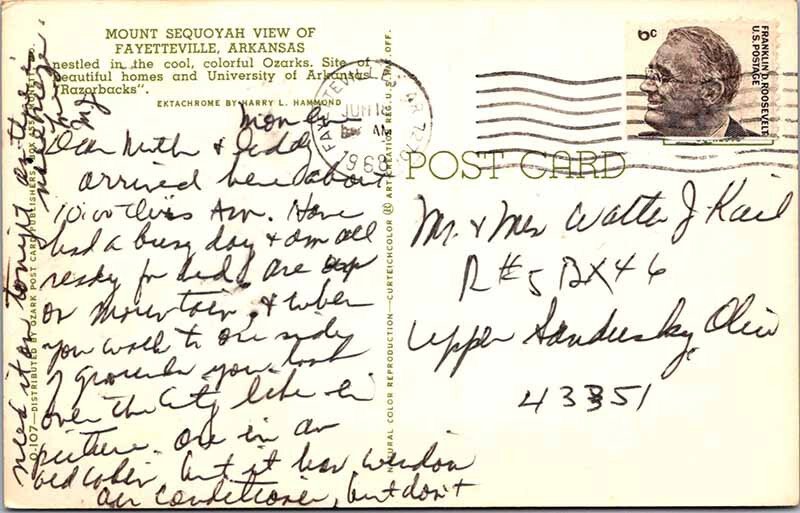 MOUNT SEQUOYAH VIEW OF
FAYETTEVILLE, ARKANSAS
nestled in the cool, colorful Ozarks. Site of
beautiful homes and University of Arkansas
"Razorbacks".
EKTACHROME BY HARRY L. HAMMOND
Mon Eve
Dear Muth & Daddy
arrived here about
10:00 this Am. Have
had a busy day & am all
ready for bed. Are up
on mountain, & when
you walk to one side
of grounds you look
over the City like in
picture. Are in an
old cabin, but it has window
air conditioner, but don't
need it on tonight as there is
nice breeze
FAYETTEVILLE, AR 727
JUN 18
AM
1968
6c
FRANKLIN D. ROOSEVELT
U.S. POSTAGE
POST CARD
Mr. & Mrs Walter J. Kail
R #5 BX 46
Upper Sandusky Ohio
43351
O-107—DISTRIBUTED BY OZARK POST CARD PUBLISHERS, BOX
NATURAL COLOR REPRODUCTION—CURTEICHCOLOR ® ART CREATION REG. U.S. PAT. OFF.